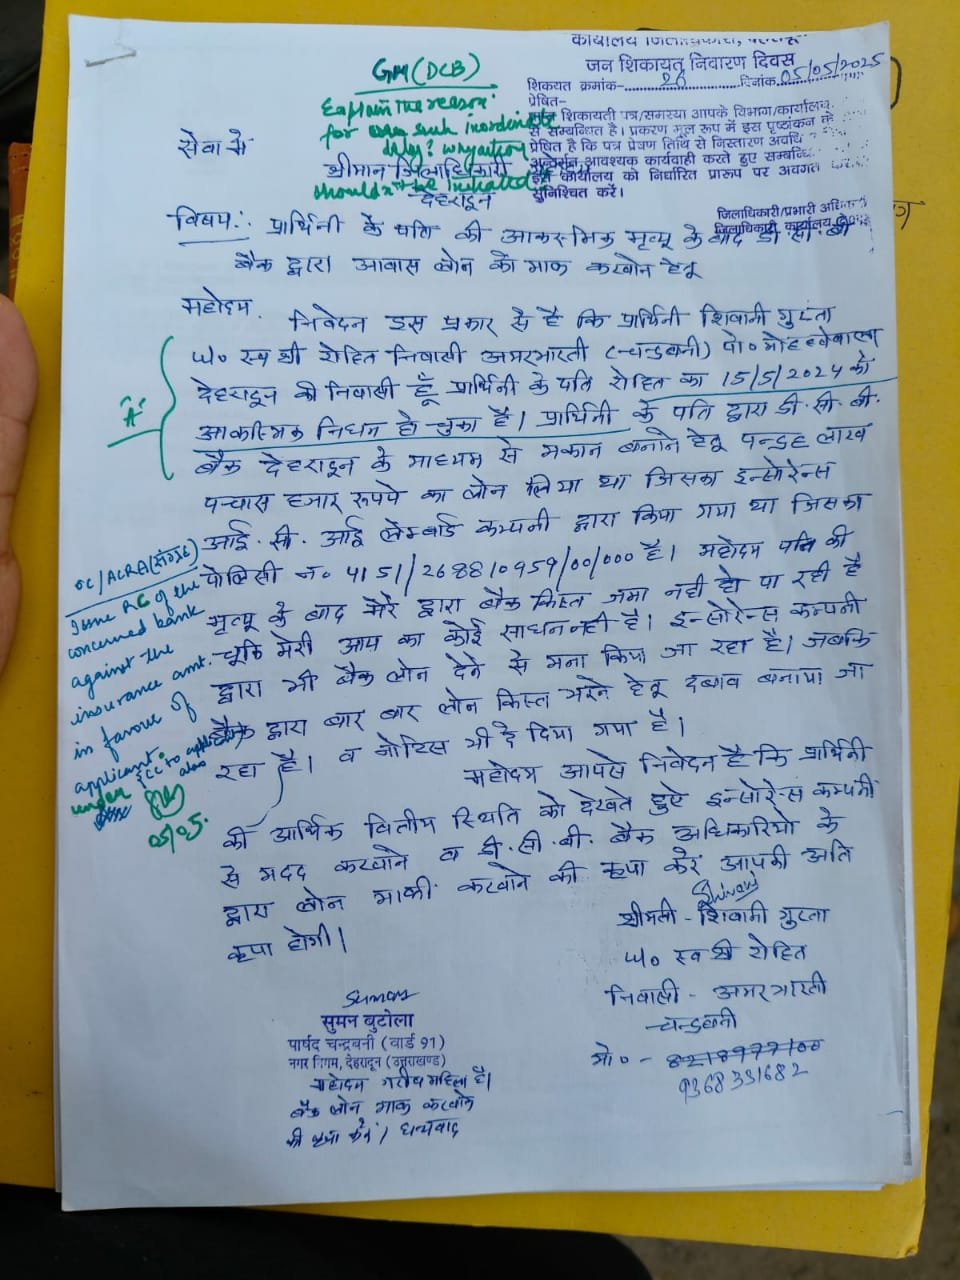 कार्यालय जिलाधिकारी,
जन शिकायत निवारण दिवस
शिकयत क्रमांक- 26 दिनांक 05/05/2025
प्रेषित-
शिकायती पत्र/समस्या आपके विभाग/कार्यालय
से सम्बन्धित है। प्रकरण मूल रूप में इस पृष्ठांकन के
प्रेषित है कि पत्र प्रेषण तिथि से निस्तारण अवधि
अन्तर्गत आवश्यक कार्यवाही करते हुए सम्बन्धित
इस कार्यालय को निर्धारित प्रारूप पर अवगत
सुनिश्चित करें।
जिलाधिकारी/प्रभारी अधिकारी
जिलाधिकारी कार्यालय
GM (DCB)
Explain the reason
for such inordinate
delay? why action
shouldn't be initiated
सेवा मे
श्रीमान जिलाधिकारी
देहरादून
विषय:- प्रार्थिनी के पति की आकस्मिक मृत्यू के बाद डी. सी. बी
बैंक द्वारा आवास लोन को माफ करवाने हेतू
महोदय.
निवेदन इस प्रकार से है कि प्रार्थिनी शिवानी गुप्ता
w/o स्व श्री रोहित निवासी अमरभारती (चन्द्रबनी) पो०
देहरादून की निवासी हूँ प्रार्थिनी के पति रोहित का 15/5/2024 को
आकस्मिक निधन हो चुका है। प्रार्थिनी के पति द्वारा डी. सी. बी.
बैंक देहरादून के माध्यम से मकान बनाने हेतू पन्द्रह लाख
पच्चास हजार रूपये का लोन लिया था जिसका इन्सोरेन्स
आई. सी. आई लेम्बार्ड कम्पनी द्वारा किया गया था जिसका
पोलिसी न० 4151/268810959/00/000 है। महोदय पति की
मृत्यू के बाद मेरे द्वारा बैंक किस्त जमा नही हो पा रही है
चूकि मेरी आय का कोई साधन नही है। इन्सोरेन्स कम्पनी
द्वारा भी बैंक लोन देने से मना किया जा रहा है। जबकि
बैंक द्वारा बार बार लोन किस्त भरने हेतू दबाव बनाया जा
रहा है। व नोटिस भी दे दिया गया है।
महोदय आपसे निवेदन है कि प्रार्थिनी
की आर्थिक वित्तीय स्थिति को देखते हुए इन्सोरेन्स कम्पनी
से मदद करवाने व डी. सी. बी. बैंक अधिकारियो के
द्वारा लोन माफी करवाने की कृपा करें आपकी अति
कृपा होगी।
"A"
OC/ACRA (संग्रह)
Issue RC of the
concerned bank
against the
insurance amt.
in favour of
applicant
under
CC to applicant
also
05/05.
Shivani
श्रीमती - शिवानी गुप्ता
w/o स्व श्री रोहित
निवासी - अमरभारती
चन्द्रबनी
मो० - 8218977100
9368331682
Suman
सुमन बुटोला
पार्षद चन्द्रबनी (वार्ड 91)
नगर निगम, देहरादून (उत्तराखण्ड)
महोदय गरीब महिला है।
बैंक लोन माफ करवाने
की कृपा करें। धन्यवाद